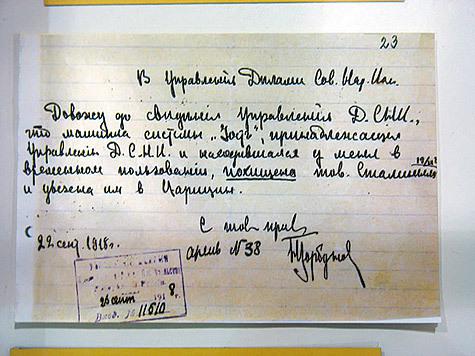 23
В Управленiя Дѣлами Сов. Нар. Ком.
Довожу до свѣдѣнiя Управленiя Д.С.Н.К.,
что машина системы „Гочъ“, принадлежащая
Управленiи Д.С.Н.К. и находившаяся у меня в
временном пользованiи, похищена тов. Сталиным
и увезена им в Царицын.
С тов. прив.
22 сент. 1918 г.
арень № 38
Горбунов
26 сент 1918 г.
Вход. № 11510